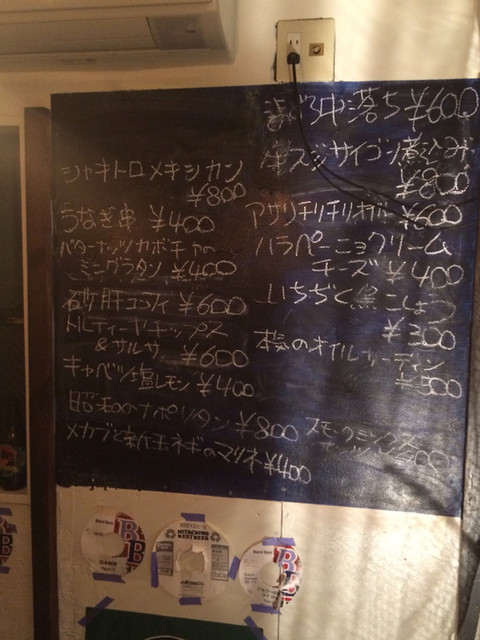 落ち ¥600
スジサイゴン煮込み
¥800
シャキトロメキシカン
¥800
アサリチリチリオイル ¥600
うなぎ串 ¥400
ハラペーニョクリーム
チーズ ¥400
バターナッツカボチャの
ミニグラタン ¥400
いちぢく黒こしょう
¥300
砂肝コンフィ ¥600
トルティーヤチップス
& サルサ ¥600
本気のオイルサーディン
¥500
キャベツ塩レモン ¥400
昭和のナポリタン ¥800
スモークミックス
ナッツ
メカブと新玉ネギのマリネ ¥400
HITACHINO
NEST BEER
Baird Beer
Baird Beer